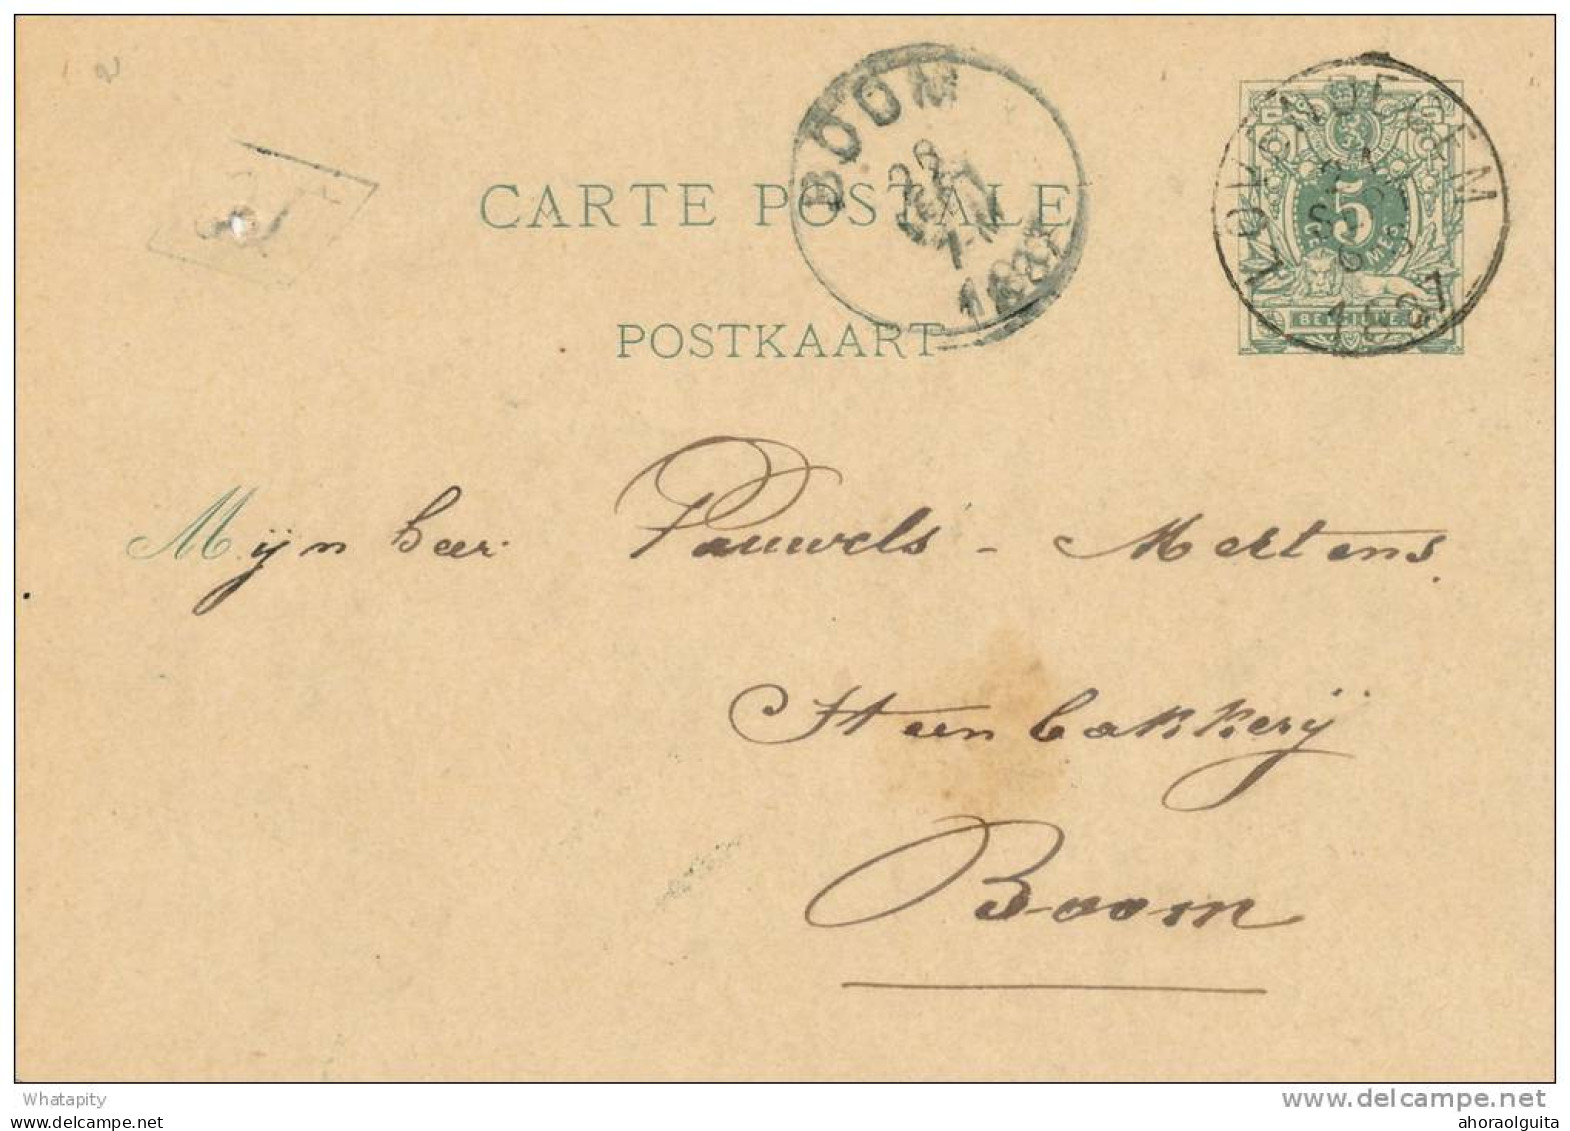 CARTE POSTALE
POSTKAART
BOOM
SEPT
7-M
1887
5
BELGIQUE
1887
Mijnheer Pauwels - Mertens.
Steenbakkerij
Boom
Whatapity
delcampe.net
ahoraolguita